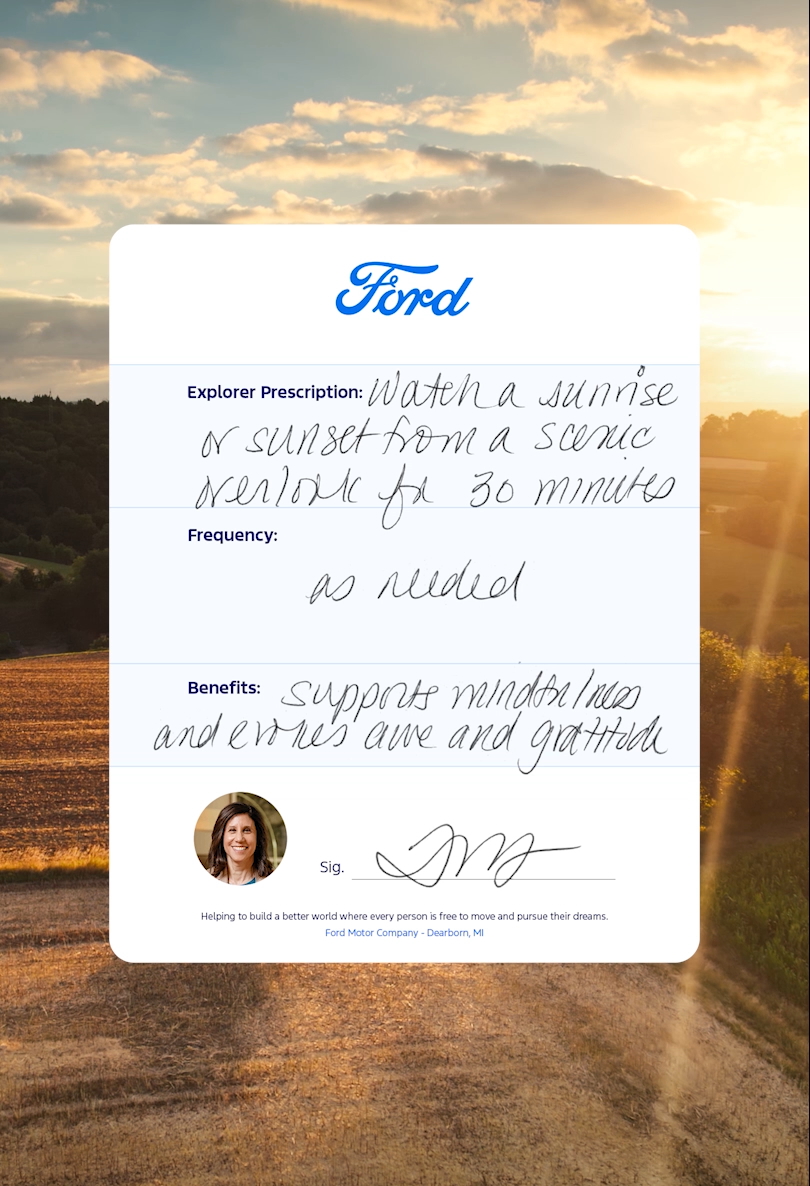 Ford
Explorer Prescription: Watch a sunrise
or sunset from a scenic
overlook for 30 minutes
Frequency:
as needed
Benefits: supports mindfulness
and evokes awe and gratitude
Sig.
Helping to build a better world where every person is free to move and pursue their dreams.
Ford Motor Company - Dearborn, MI